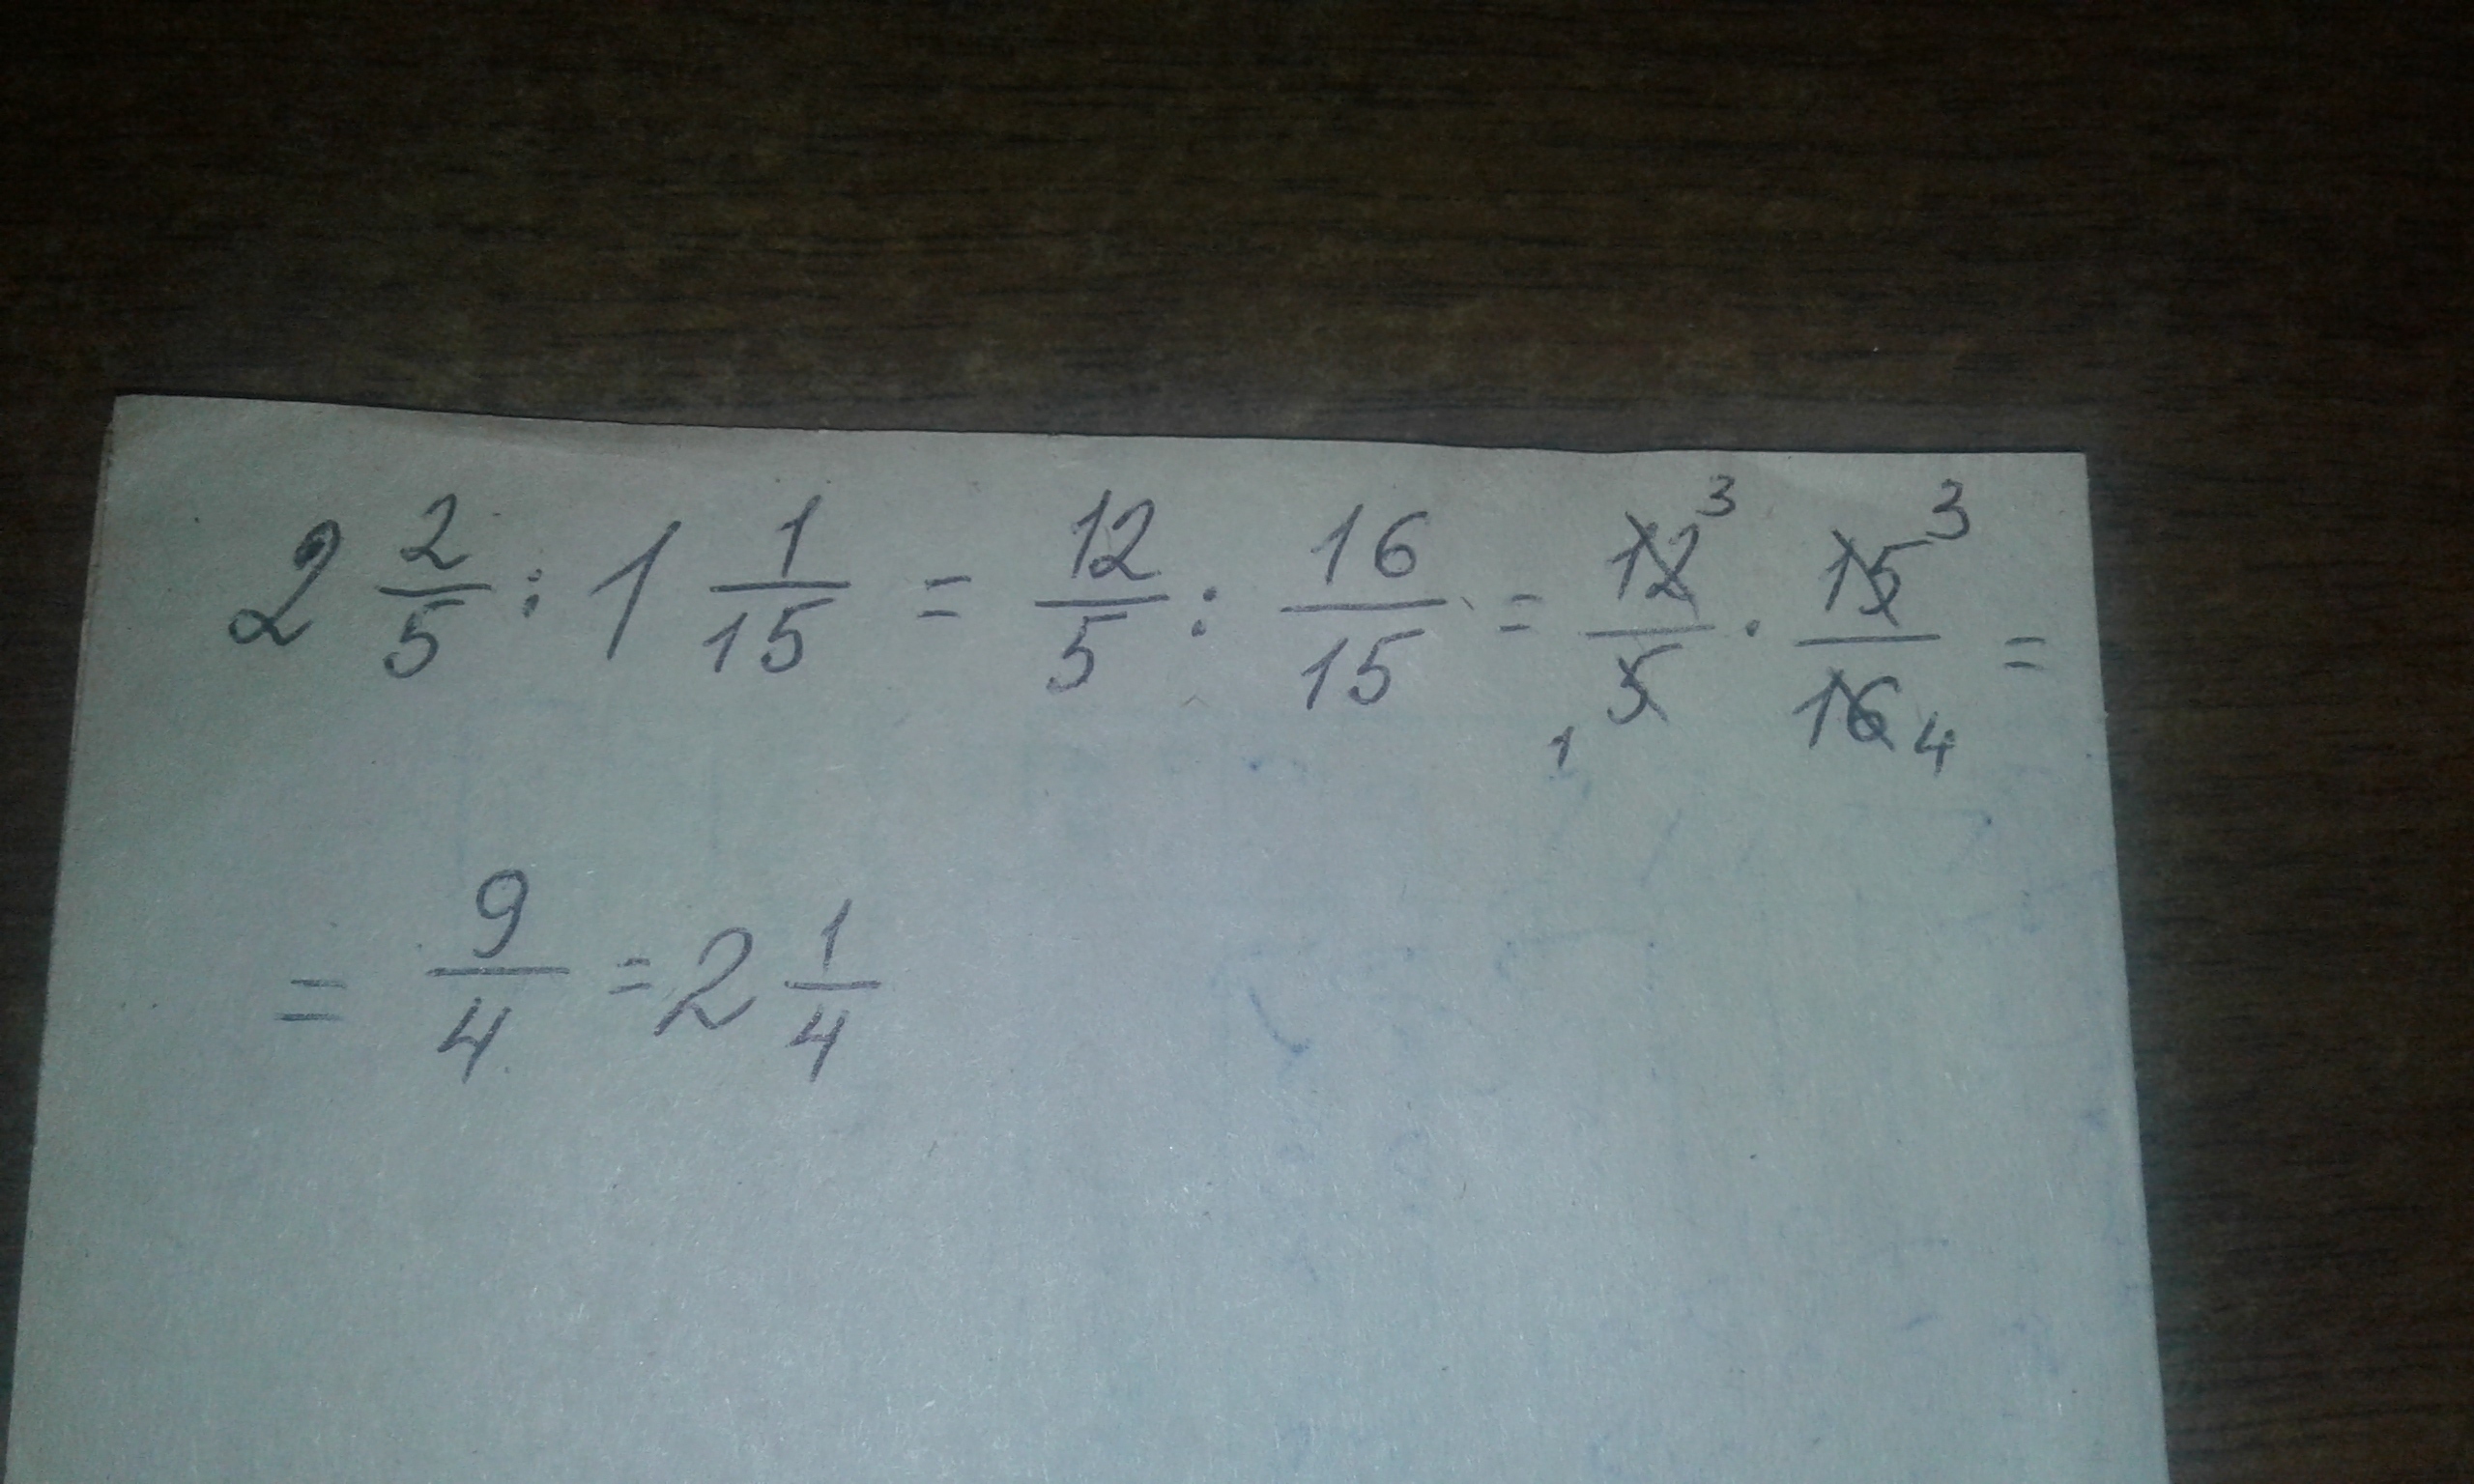 2 2/5 : 1 1/15 = 12/5 : 16/15 = 12³/₁5 · 15³/16₄ =
= 9/4 = 2 1/4